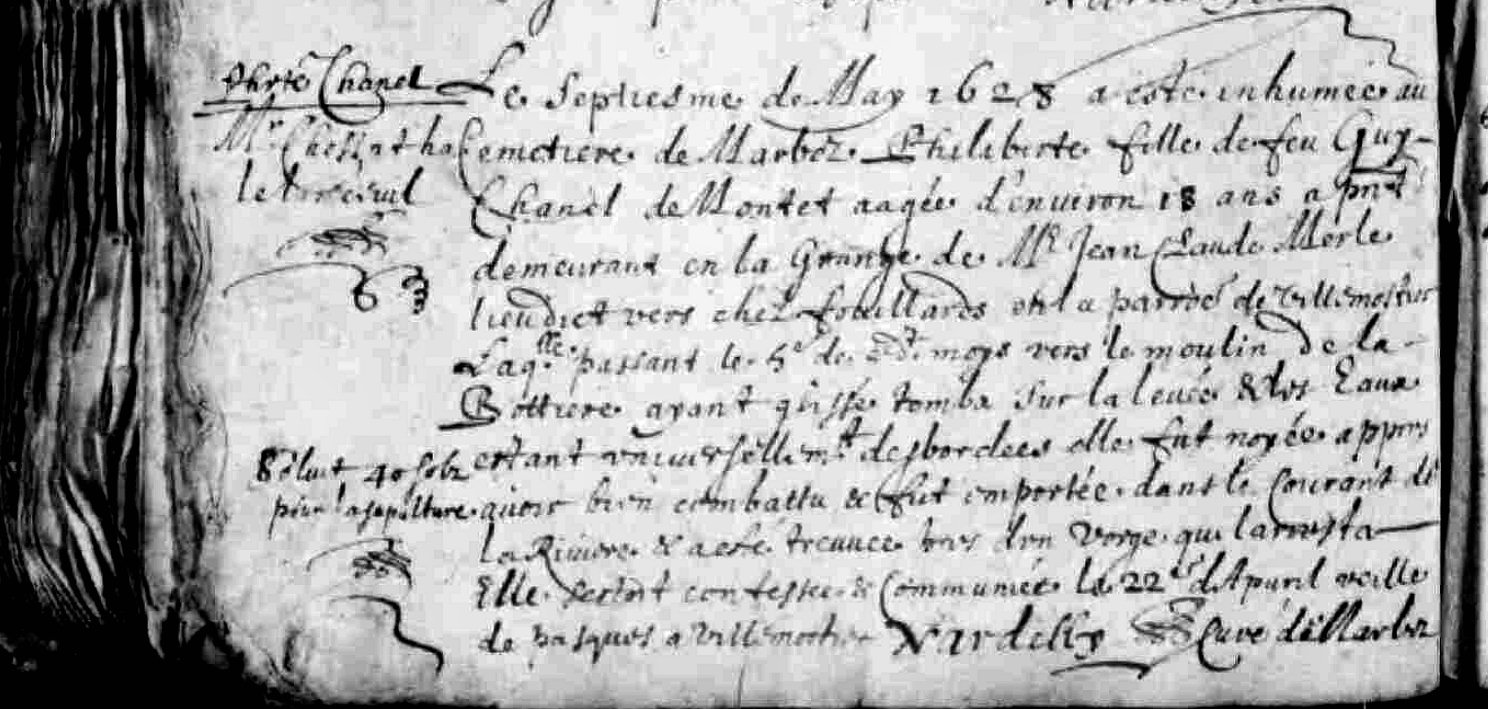 Phrte Chanel
Mr
le
8
40 solz
pour la sepulture
Le Septiesme de May 1628 a esté inhumée au
Cemetiere de Marboz Philiberte fille de feu Guy
Chanel de Montet aagée d'environ 18 ans a pnt
demeurant en la Grange de Mr Jean Claude Merle
lieudict vers chez fouillards en la parroe de villemostier
Laqlle passant le 5e de moys vers le moulin de la
Bottiere ayant glissé tomba sur la leuée & les Eaux
estant vniuersellemt desbordees elle fut noyée appres
auoir bien combattu & fut emportée dans le Courant de
la Riuiere & a esté treuuee vers d'vn verge qui l'arresta
Elle s'estoit confessée & Communiée le 22e d'Apuril veille
de pasques a villemostier Vardelly Curé de Marboz